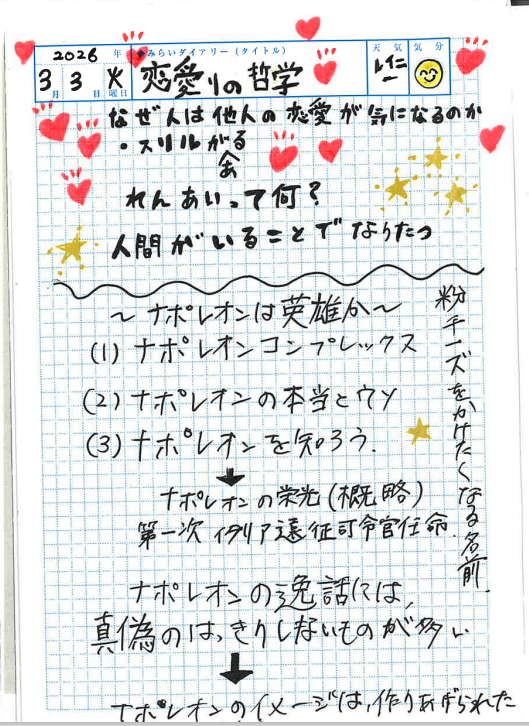 2026 年 ◆みらいダイアリー(タイトル) 天気 気分
3月 3日 火曜日 恋愛りの哲学 レイニー
なぜ人は他人の恋愛が気になるのか
・スリルがある
れんあいって何?
人間がいることでなりたつ
〜ナポレオンは英雄か〜
(1) ナポレオンコンプレックス
(2) ナポレオンの本当とウソ
(3) ナポレオンを知ろう.
ナポレオンの栄光(概略)
第一次イタリア遠征司令官任命.
ナポレオンの逸話には,
真偽のはっきりしないものが多い
ナポレオンのイメージは,作りあげられた
粉チーズをかけたくなる名前.